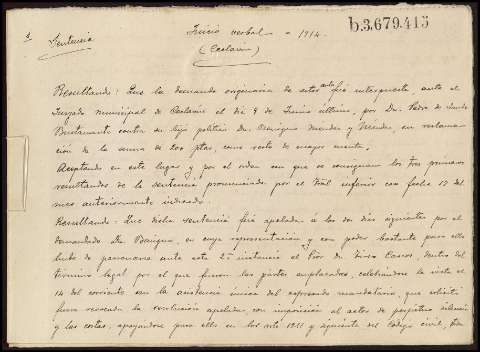 b.3.679.415
Juicio verbal - 1914.
Sentencia
(Ceclavin)
Resultando: Que la demanda originaria de estos autos fué interpuesta, ante el
Juzgado municipal de Ceclavin el dia 9 de Junio último, por Dn. Pedro de
Bustamante contra su hijo político Dn. Benigno y en reclama
ción de la suma de 200 ptas, como resto de mayor cuenta.
Aceptando en este lugar y por el orden con que se consignan los tres primeros
resultandos de la sentencia pronunciada por el Tral inferior con fecha 17 del
mes anteriormente indicado.
Resultando: Que dicha sentencia fué apelada á los dos dias siguientes por el
demandado Dn Benigno, en cuya representación y con poder bastante para ello
hubo de personarse ante esta 2ª instancia el dentro del
término legal por el que fueron las partes emplazadas, celebrándose la vista el
14 del corriente con la asistencia única del expresado mandatario, que solicitó
fuera revocada la resolución apelada, con imposición al actor de perpetuo silencio
y las costas, apoyándose para ello en los arts 1211 y siguientes del Código civil,